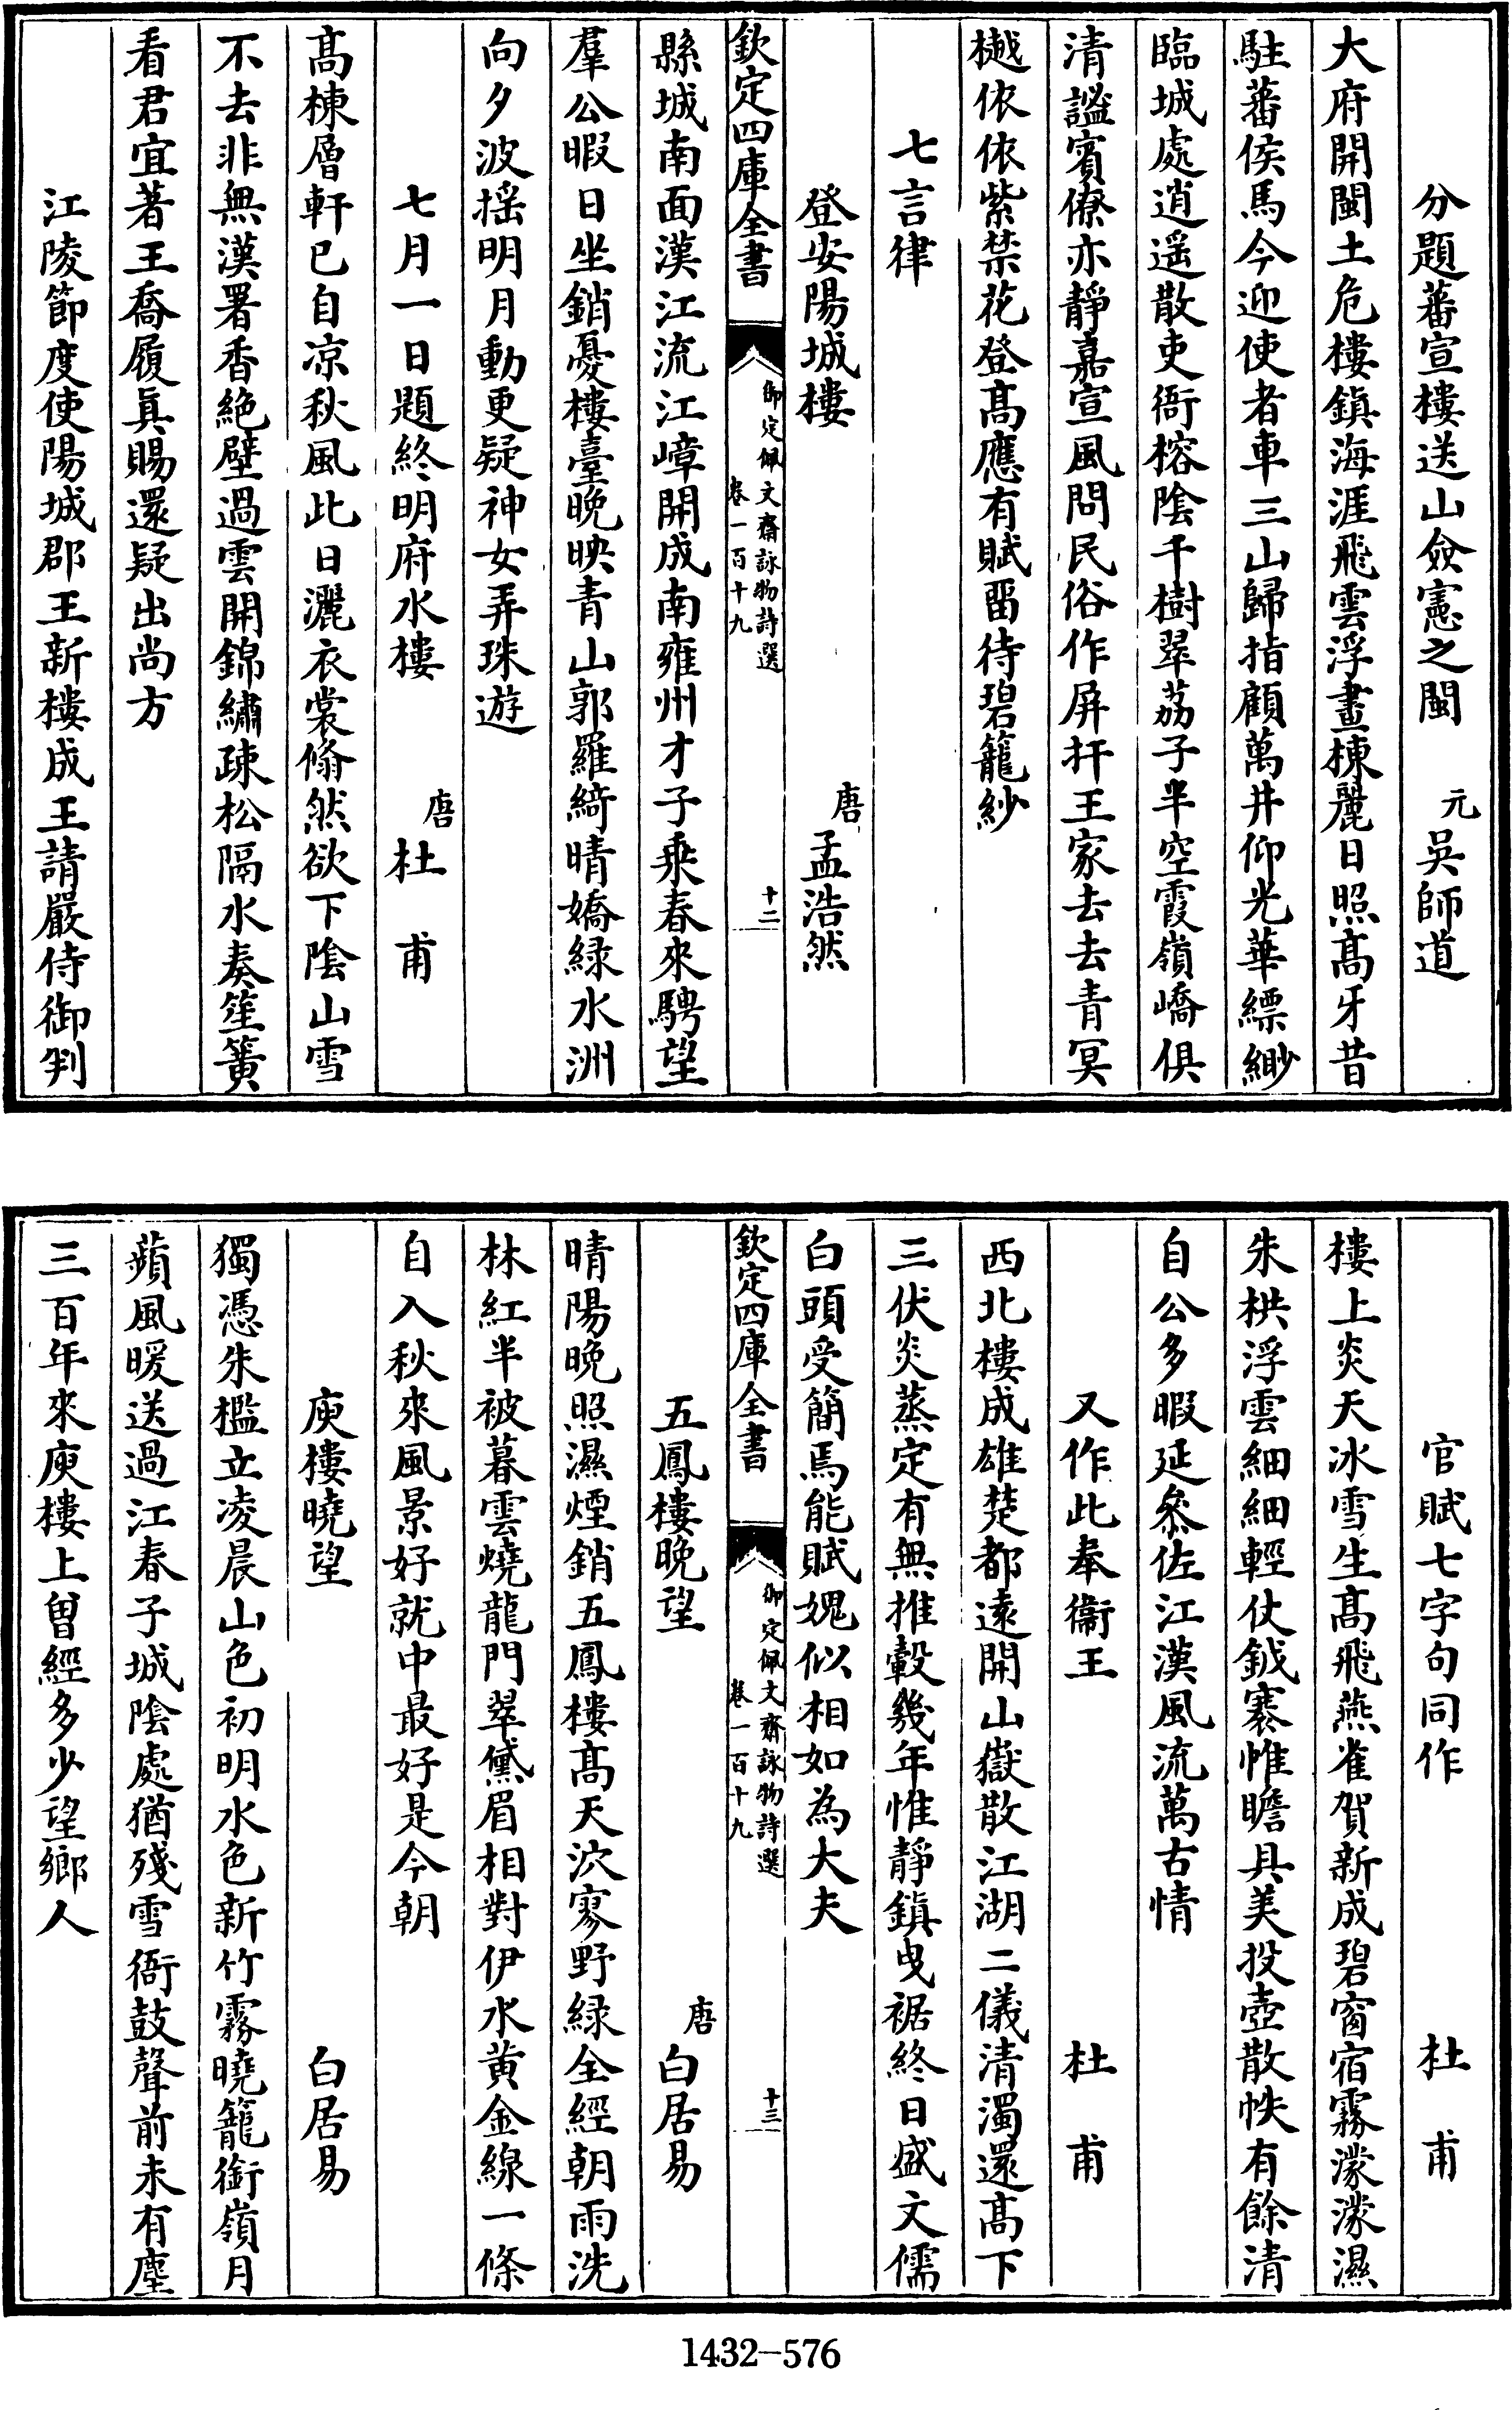 分題蕃宣樓送山僉憲之閩　元吳師道
大府開閩土危樓鎮海涯飛雲浮畫棟麗日照髙牙昔
駐蕃侯馬今迎使者車三山歸指顧萬井仰光華縹緲
臨城處逍遥散吏衙榕陰千樹翠荔子半空霞嶺嶠俱
清謐賓僚亦靜嘉宣風問民俗作屏扞王家去去青冥
樾依依紫禁花登髙應有賦畱待碧籠紗
七言律
登安陽城樓　唐孟浩然
欽定四庫全書　御定佩文齋詠物詩選　卷一百十九　十二
縣城南面漢江流江嶂開成南雍州才子乘春來騁望
羣公暇日坐銷憂樓臺晚映青山郭羅綺晴嬌緑水洲
向夕波揺明月動更疑神女弄珠遊
七月一日題終明府水樓　唐杜甫
髙棟層軒已自凉秋風此日灑衣裳翛然欲下陰山雪
不去非無漢署香絶壁過雲開錦繡疎松隔水奏笙簧
看君宜著王喬履眞賜還疑出尚方
江陵節度使陽城郡王新樓成王請嚴侍御判
官賦七字句同作　杜甫
樓上炎天冰雪生髙飛燕雀賀新成碧窗宿霧濛濛濕
朱栱浮雲細細輕仗鉞褰惟瞻具美投壺散帙有餘清
自公多暇延叅佐江漢風流萬古情
又作此奉衞王　杜甫
西北樓成雄楚都逺開山嶽散江湖二儀清濁還髙下
三伏炎蒸定有無推轂幾年惟靜鎮曵裾終日盛文儒
白頭受簡焉能賦媿似相如為大夫
欽定四庫全書　御定佩文齋詠物詩選　卷一百十九　十三
五鳳樓晚望　唐白居易
晴陽晚照濕煙銷五鳳樓髙天泬寥野緑全經朝雨洗
林紅半被暮雲燒龍門翠黛眉相對伊水黄金線一條
自入秋來風景好就中最好是今朝
庾樓曉望　白居易
獨憑朱檻立凌晨山色初明水色新竹霧曉籠銜嶺月
蘋風暖送過江春子城陰處猶殘雪衙鼓聲前未有塵
三百年來庾樓上曽經多少望鄉人
1432-576